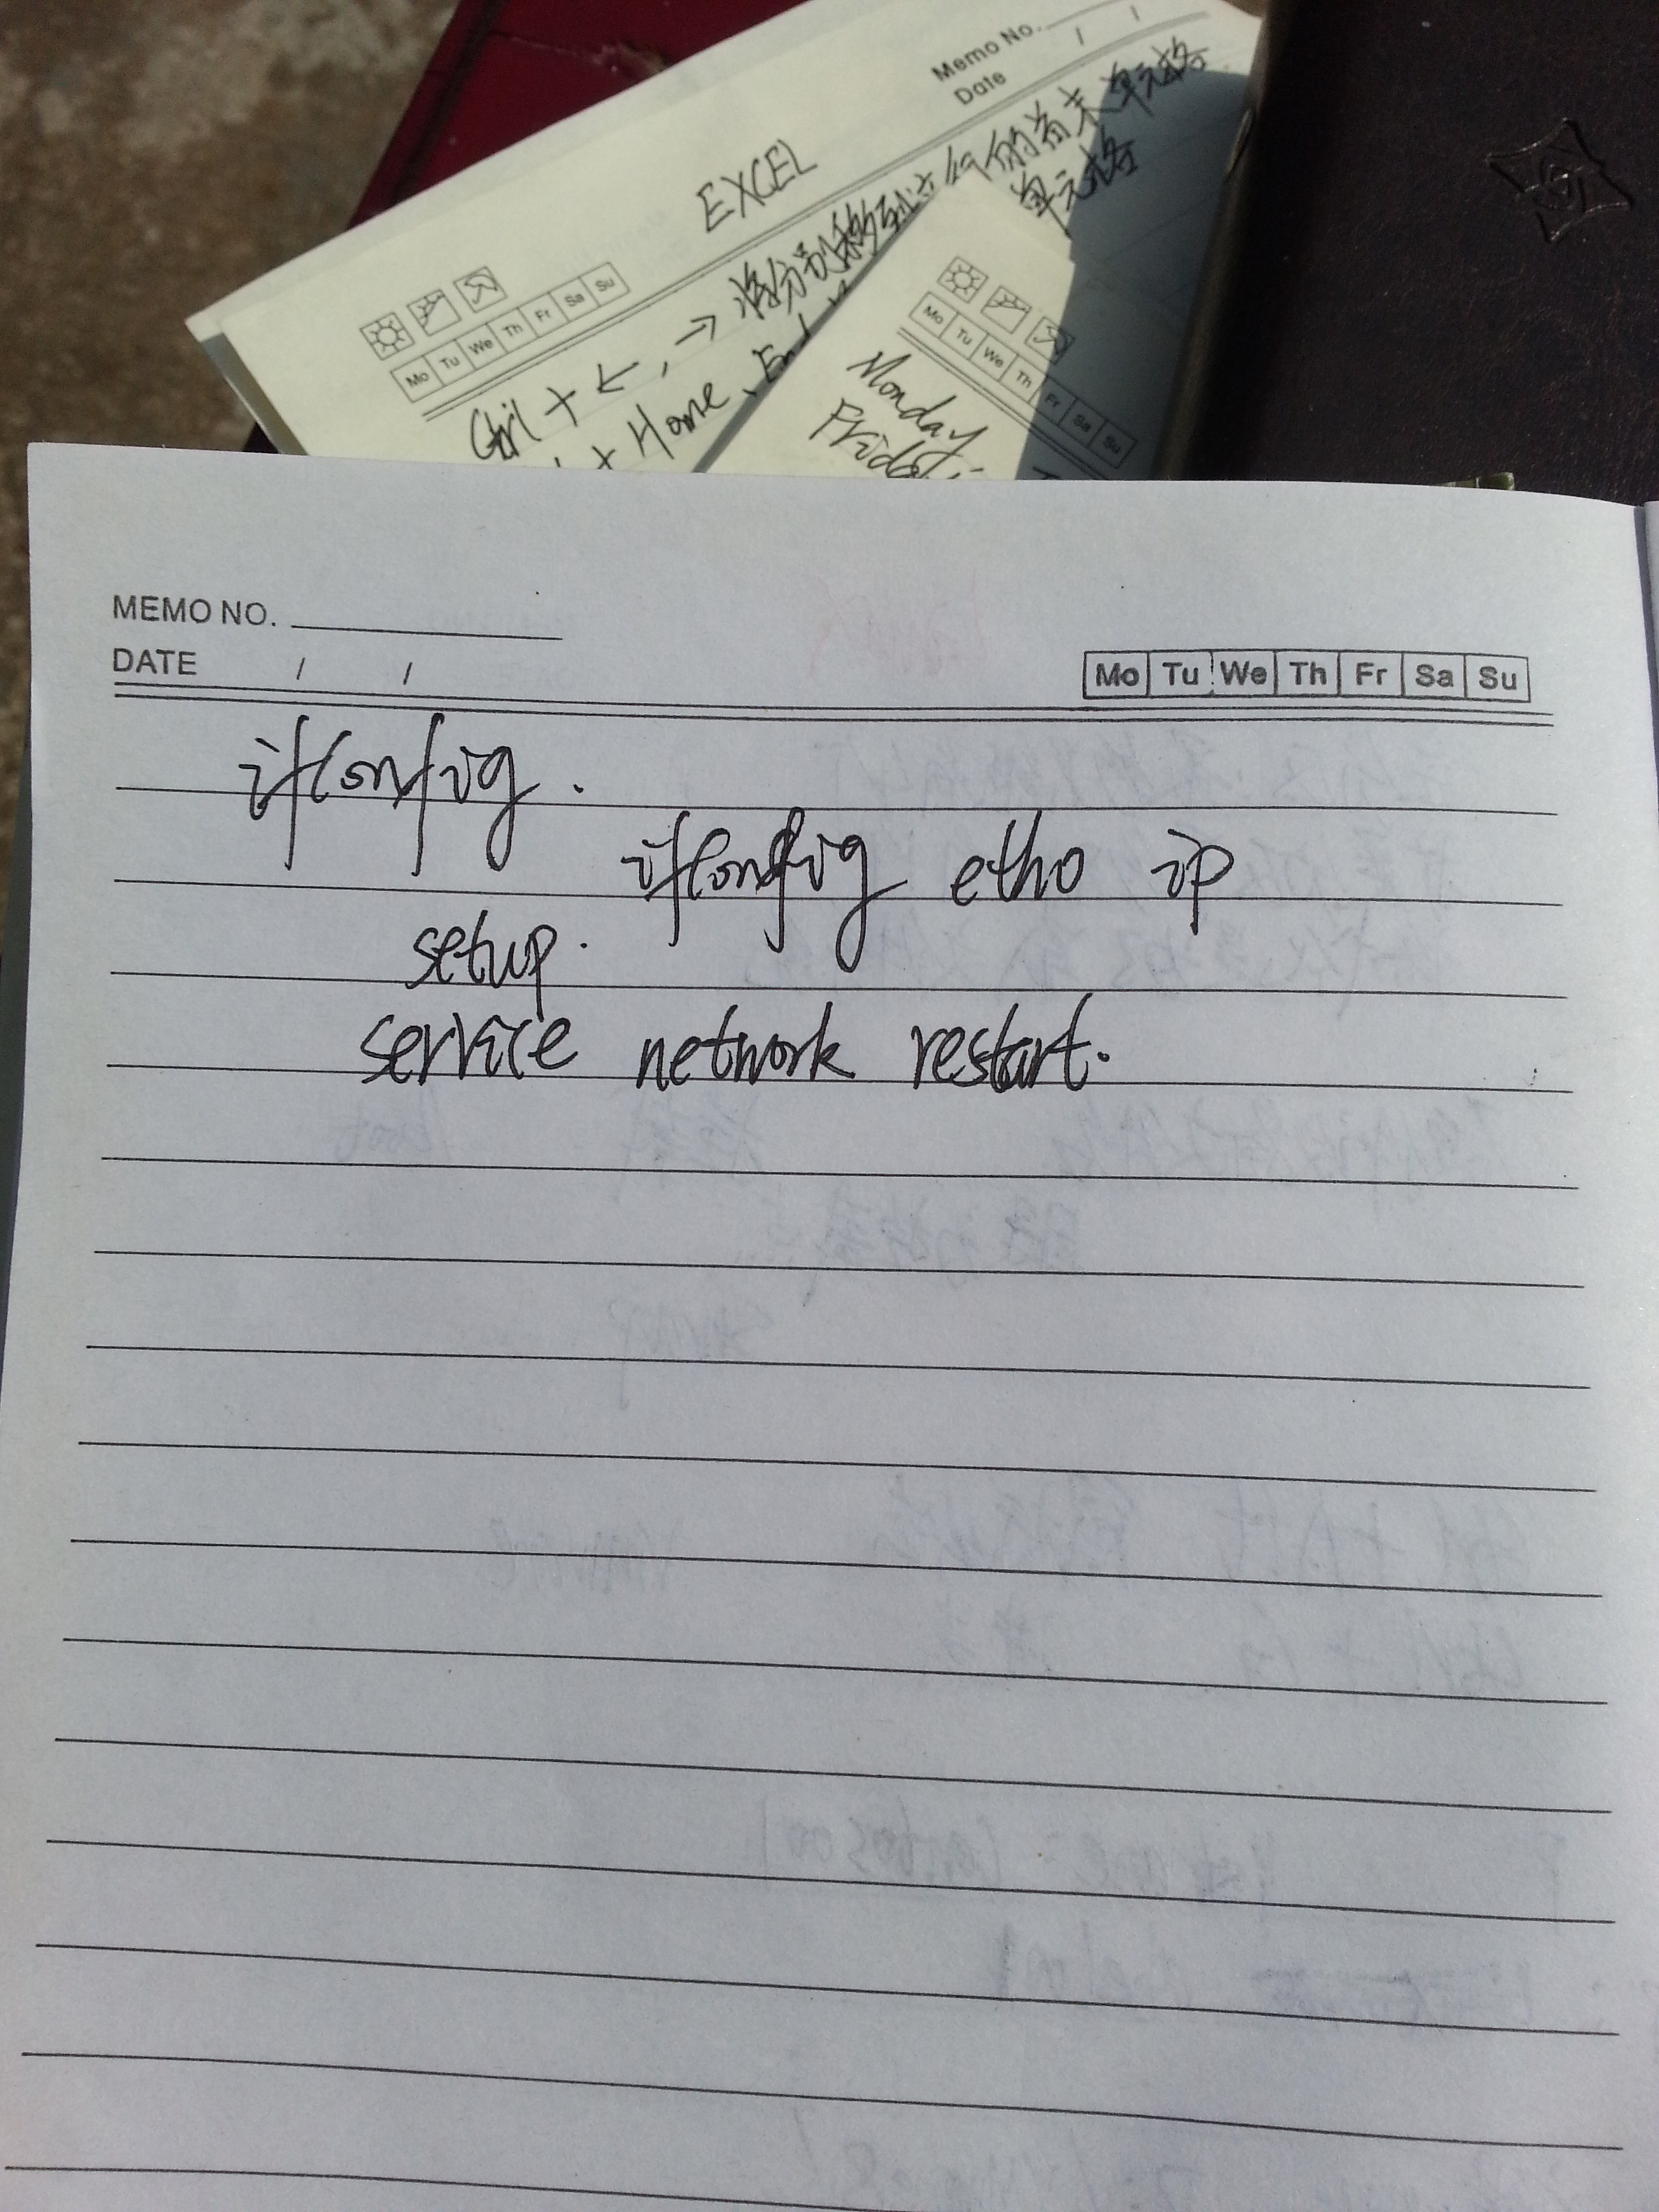 Memo No.
Date / /
EXCEL
Mo Tu We Th Fr Sa Su
Ctrl + ←, → 将分别移到
的首末单元格
+ Home、End
单元格
Mo Tu We Th Fr Sa Su
Monday
Friday
MEMO NO.
DATE / /
Mo Tu We Th Fr Sa Su
ifconfig.
ifconfig etho ip
setup.
service network restart.